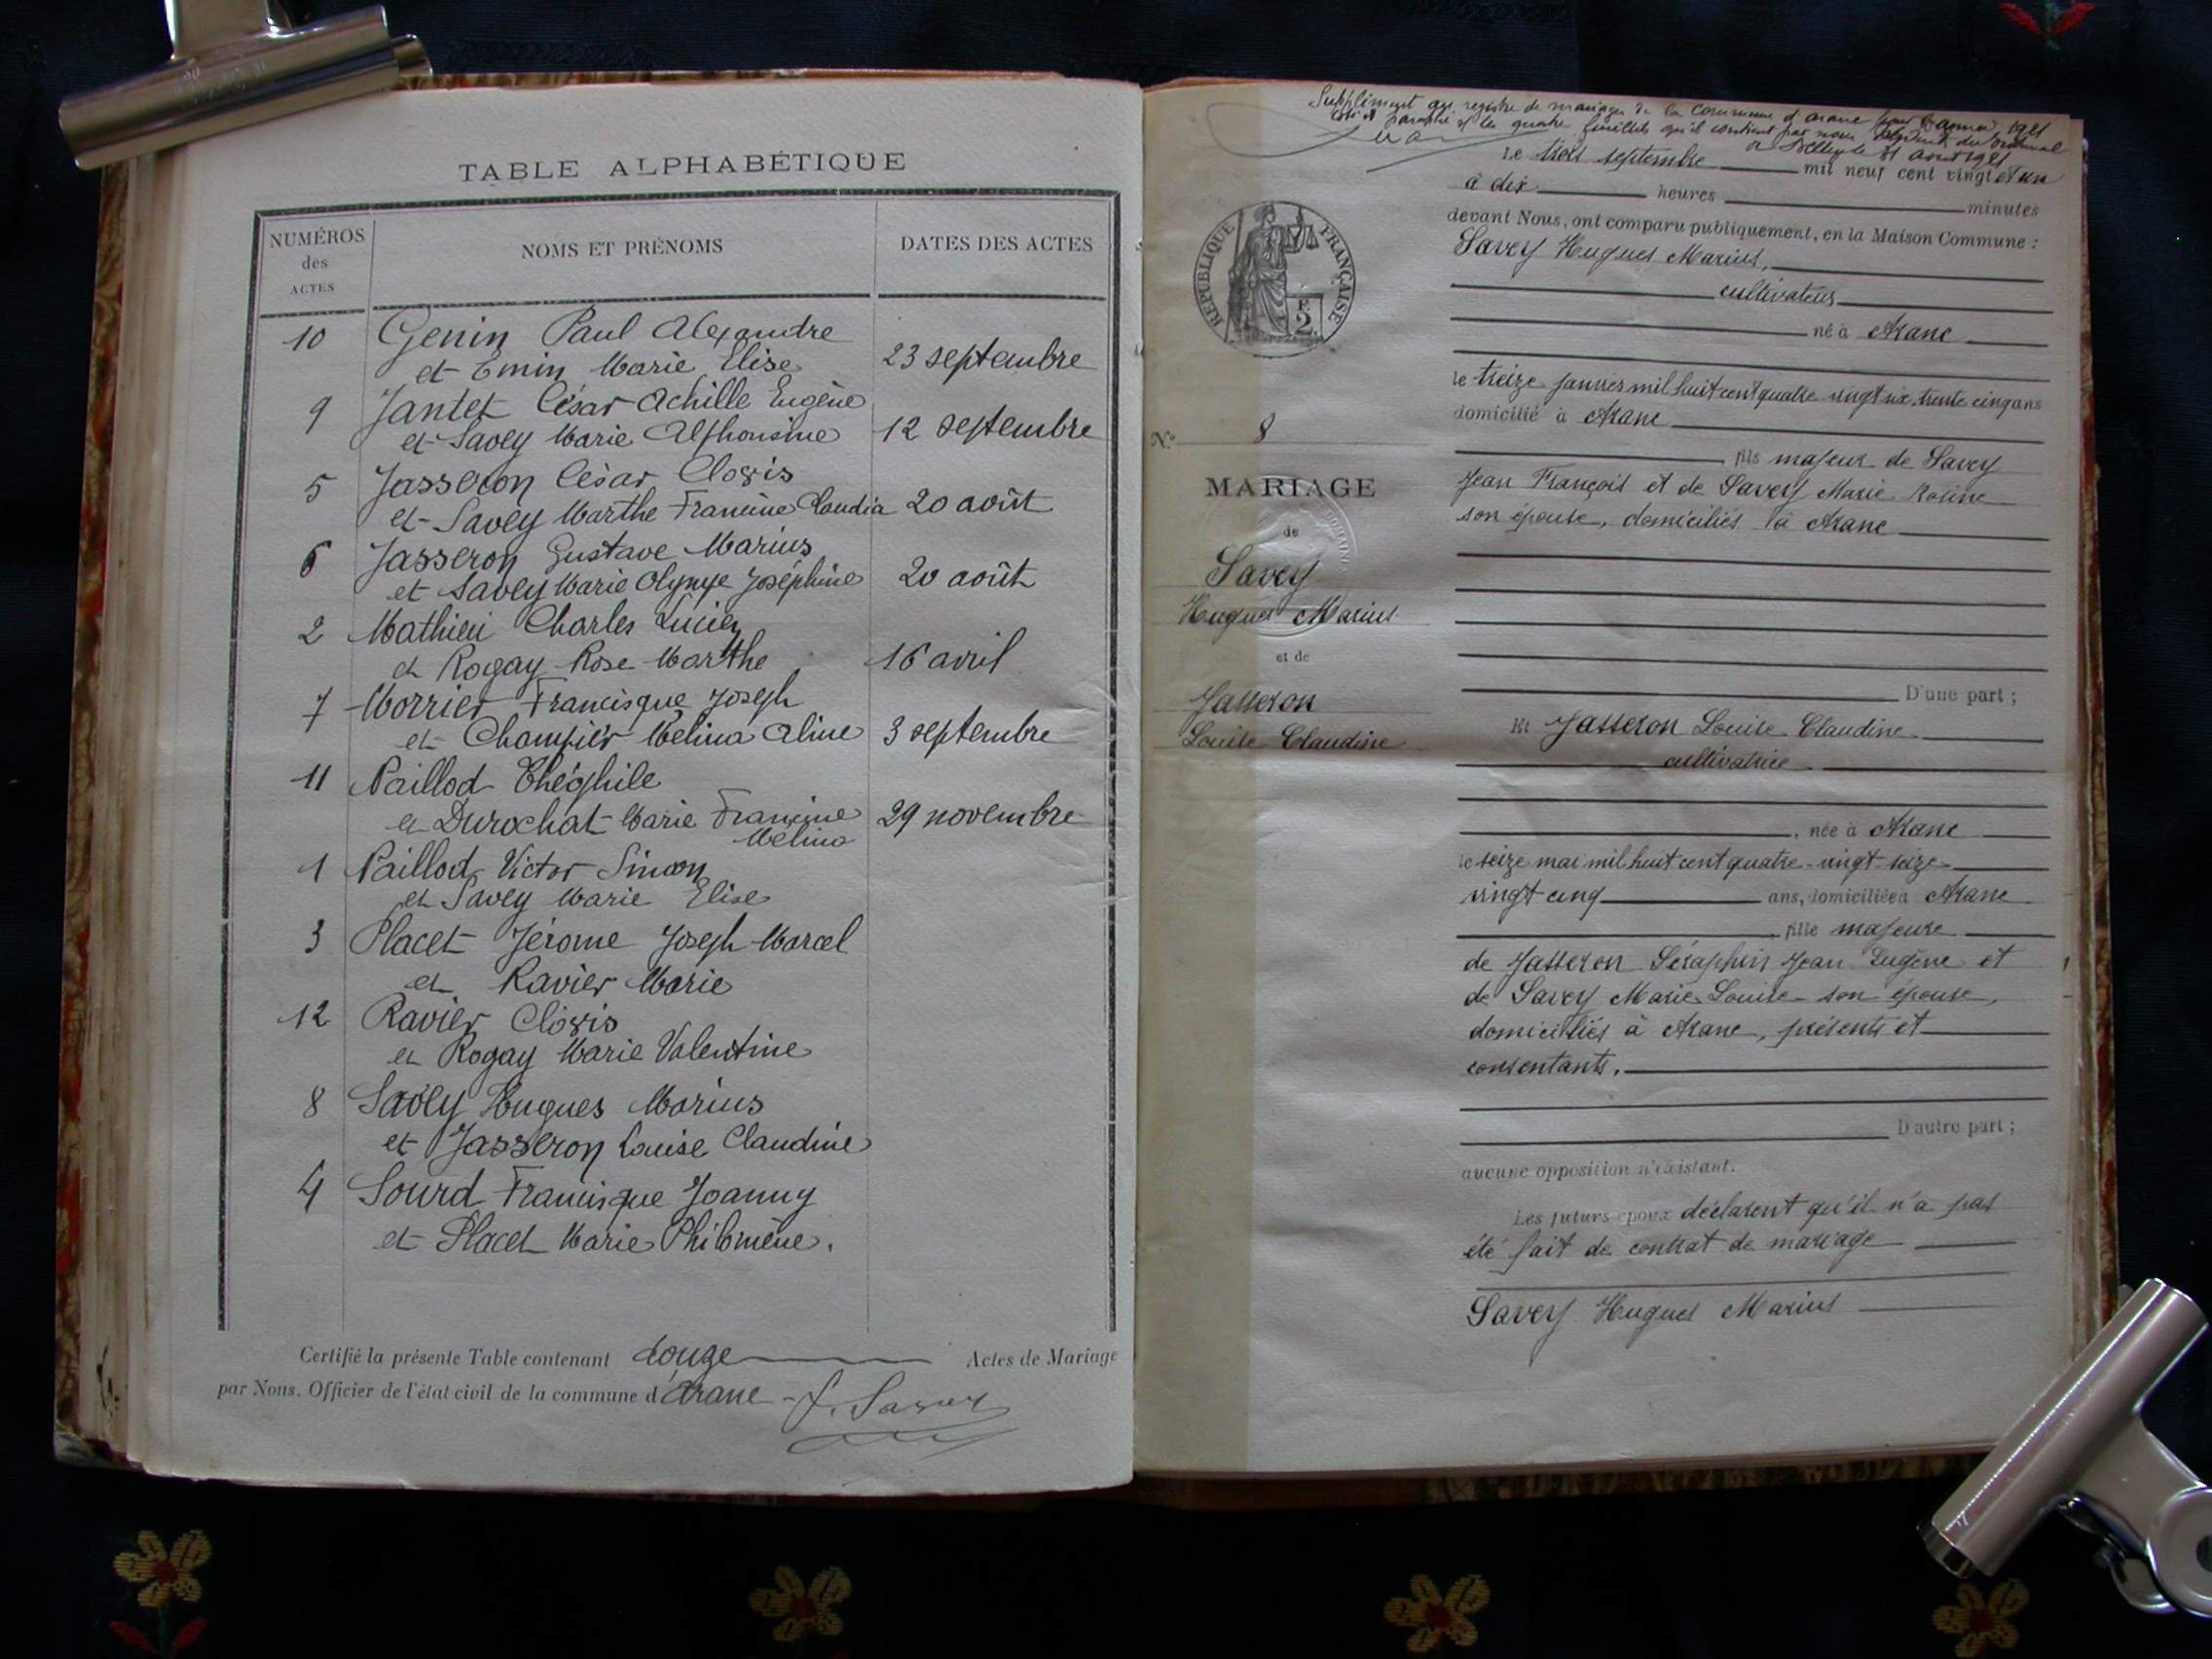 TABLE ALPHABÉTIQUE
NUMÉROS
des
ACTES
NOMS ET PRÉNOMS
DATES DES ACTES
10 Genin Paul Alexandre
et Emin Marie Elise 23 septembre
9 Jantet César Achille Eugène
et Savey Marie Alphonsine 12 septembre
5 Jasseron César Clovis
et Savey Marthe Francine Claudia 20 août
6 Jasseron Gustave Marius
et Savey Marie Olympe Joséphine 20 août
2 Mathieu Charles Lucien
et Rogay Rose Marthe 16 avril
7 Morrier Francisque Joseph
et Champier Mélina Aline 3 septembre
11 Paillod Théophile
et Durochat Marie Francine 29 novembre
Mélina
1 Paillod Victor Simon
et Savey Marie Elise
3 Placet Jérome Joseph Marcel
et Ravier Marie
12 Ravier Clovis
et Rogay Marie Valentine
8 Savey Hugues Marius
et Jasseron Louise Claudine
4 Sourd Francisque Joanny
et Placet Marie Philomène.
Certifié la présente Table contenant douze Actes de Mariage
par Nous, Officier de l'état civil de la commune d'Aranc
Savey
Supplément au registre de mariages de la commune d'aranc pour l'année 1921
coté et paraphé les quatre feuillets qu'il contient par nous Président du Tribunal
de Belley le 31 août 1921
RÉPUBLIQUE FRANÇAISE
2
N° 8
MARIAGE
de
Savey
Hugues Marius
et de
Jasseron
Louise Claudine
Le trois septembre mil neuf cent vingt et un
à dix heures minutes
devant Nous, ont comparu publiquement, en la Maison Commune :
Savey Hugues Marius,
cultivateur
né à Aranc
le treize janvier mil huit cent quatre vingt six, trente cinq ans
domicilié à Aranc
fils majeur de Savey
Jean François et de Savey Marie Rosine
son épouse, domiciliés à Aranc
D'une part ;
Et Jasseron Louise Claudine
cultivatrice
, née à Aranc
le seize mai mil huit cent quatre-vingt-seize
vingt cinq ans, domiciliée à Aranc
fille majeure
de Jasseron Séraphin Jean Eugène et
de Savey Marie Louise son épouse,
domiciliés à Aranc, présents et
consentants.
D'autre part ;
aucune opposition n'existant.
Les futurs époux déclarent qu'il n'a pas
été fait de contrat de mariage
Savey Hugues Marius